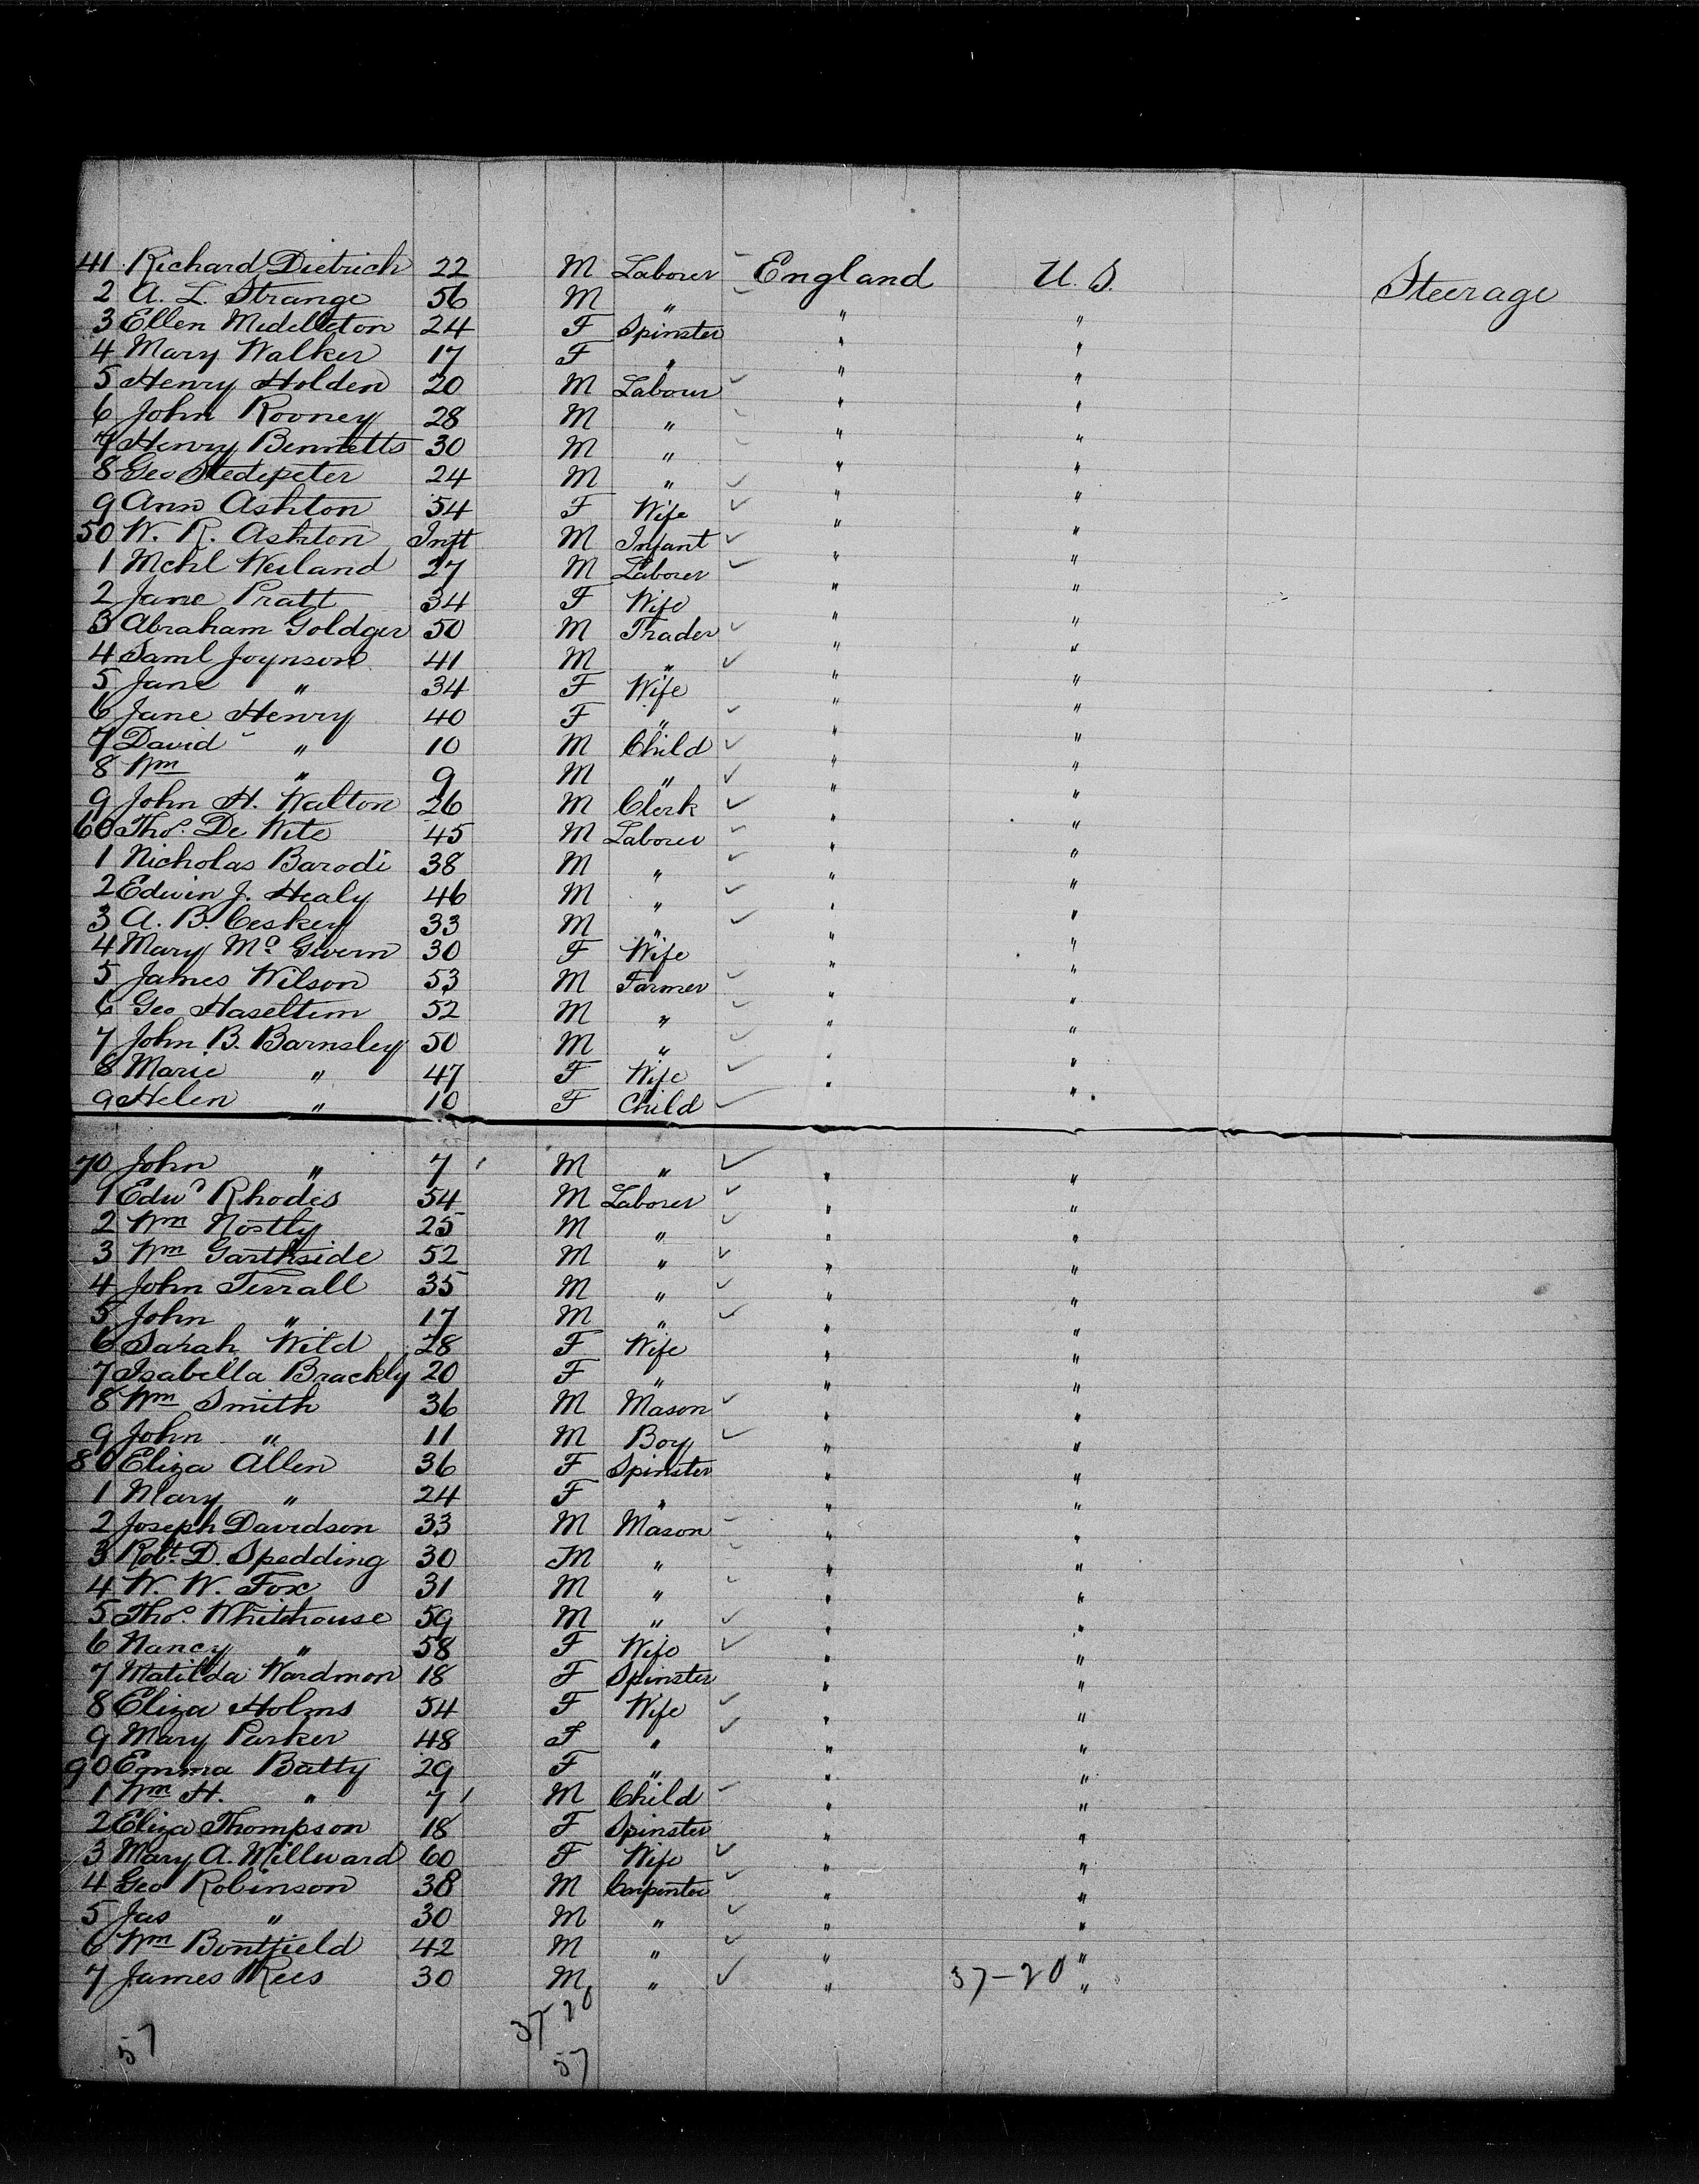 41 Richard Dietrich 22 M Laborer England U.S. Steerage
2 A. L. Strange 56 M " " "
3 Ellen Medelleton 24 F Spinster " "
4 Mary Walker 17 F " " "
5 Henry Holden 20 M Labour " "
6 John Rooney 28 M " " "
7 Henry Bennetts 30 M " " "
8 Geo Stedepeter 24 M " " "
9 Ann Ashton 54 F Wife " "
50 W. R. Ashton Inft M Infant " "
1 Mchl Weiland 27 M Laborer " "
2 Jane Pratt 34 F Wife " "
3 Abraham Goldger 50 M Trader " "
4 Saml Joynson 41 M " " "
5 Jane " 34 F Wife " "
6 Jane Henry 40 F " " "
7 David " 10 M Child " "
8 Wm " 9 M " " "
9 John H. Walton 26 M Clerk " "
60 Tho. De Wite 45 M Laborer " "
1 Nicholas Barodi 38 M " " "
2 Edwin J. Healy 46 M " " "
3 A. B. Ceskey 33 M " " "
4 Mary Mc Givern 30 F Wife " "
5 James Wilson 53 M Farmer " "
6 Geo Haseltim 52 M " " "
7 John B. Barnsley 50 M " " "
8 Marie " 47 F Wife " "
9 Helen " 10 F Child " "
70 John " 7 M " " "
1 Edwd Rhodes 54 M Laborer " "
2 Wm Nostly 25 M " " "
3 Wm Garthside 52 M " " "
4 John Terrall 35 M " " "
5 John " 17 M " " "
6 Sarah Wild 28 F Wife " "
7 Isabella Brackly 20 F " " "
8 Wm Smith 36 M Mason " "
9 John " 11 M Boy " "
80 Eliza Allen 36 F Spinster " "
1 Mary " 24 F " " "
2 Joseph Davidson 33 M Mason " "
3 Robt. D. Spedding 30 M " " "
4 W. W. Fox 31 M " " "
5 Tho. Whitehouse 59 M " " "
6 Nancy " 58 F Wife " "
7 Matilda Wardmon 18 F Spinster " "
8 Eliza Holms 54 F Wife " "
9 Mary Parker 48 F " " "
90 Emma Batty 29 F " " "
1 Wm H. " 7 M Child " "
2 Eliza Thompson 18 F Spinster " "
3 Mary A. Millward 60 F Wife " "
4 Geo Robinson 38 M Carpenter " "
5 Jas " 30 M " " "
6 Wm Bontfield 42 M " " "
7 James Rees 30 M " " 37-20 "
37-20
57 57